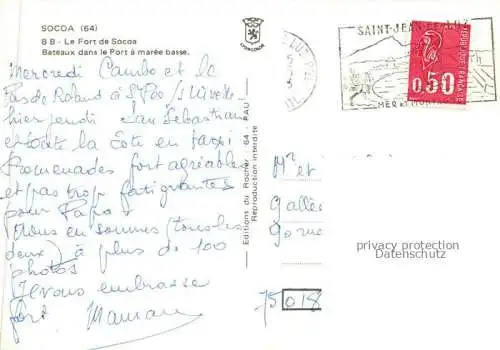 SOCOA (64)
8 B - Le Fort de Socoa
Bateaux dans le Port à marée basse.
Mercredi Cambo et le
Pas de Roland à St Pée s/Nivelle
hier jeudi San Sébastian
et toute la Côte en taxi
Promenades fort agréables
et pas trop fatigantes
pour Papa
Nous en sommes (tous les
deux) à plus de 100
photos
Je vous embrasse
fort Maman
Editions du Rocher - 64 - PAU
Reproduction interdite
SAINT-JEAN-DE-LUZ
MER ET MONTAGNE
0,50
REPUBLIQUE FRANCAISE
Mr et
75018
privacy protection
Datenschutz